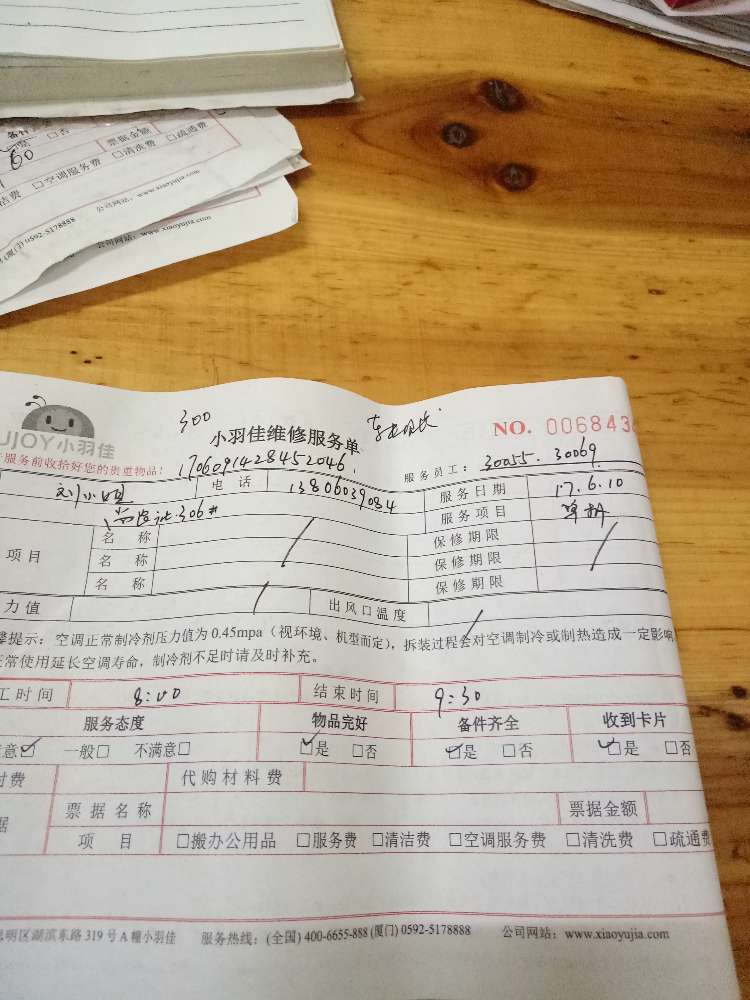 备件
□否
票据金额
60
洁费 □空调服务费 □清洗费 □疏通费
(厦门) 0592-5178888 公司网站：www.xiaoyujia.com
公司网站：www.xiaoyujia.com
300
UJOY小羽佳
小羽佳维修服务单
NO. 006843
服务前收拾好您的贵重物品！
1706091428452046
服务员工：30055. 30069
刘小姐 电话 13806039084 服务日期 17.6.10
306# 服务项目
项目 名称 保修期限
名称 保修期限
名称 保修期限
力值 出风口温度
馨提示：空调正常制冷剂压力值为0.45mpa（视环境、机型而定），拆装过程会对空调制冷或制热造成一定影响
正常使用延长空调寿命，制冷剂不足时请及时补充。
工时间 8:00 结束时间 9:30
服务态度 物品完好 备件齐全 收到卡片
意☑ 一般□ 不满意□ ☑是 □否 ☑是 □否 ☑是 □否
付费 代购材料费
据 票据名称 票据金额
项目 □搬办公用品 □服务费 □清洁费 □空调服务费 □清洗费 □疏通费
思明区湖滨东路319号A幢小羽佳 服务热线：(全国) 400-6655-888 (厦门) 0592-5178888 公司网站：www.xiaoyujia.com